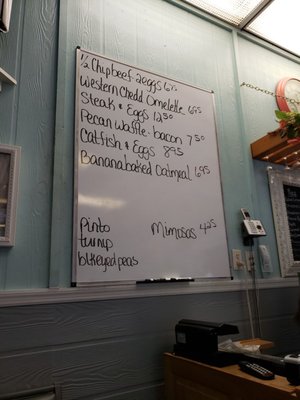 ½ Chipbeef. 2eggs 675
Western Chedd Omelette 895
Steak & Eggs 1250
Pecan Waffle. bacon 750
Catfish & Eggs 895
Banana baked Oatmeal 695
Pinto
turnip
blkeyed peas
Mimosas 425